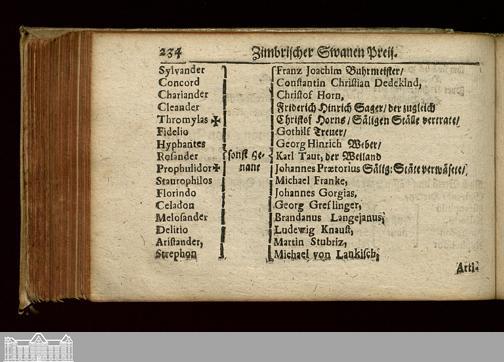 234 Zimbrischer Swanen Preiß.
Sylvander Franz Joachim Buhrmeister/
Concord Constantin Christian Dedekind,
Chariander Christof Horn,
Cleander Friderich Hinrich Sager/ der zugleich
Thromylas✠ Christof Horns/ Säligen Ställe vertrate/
Fidelio Gothilf Treuer/
Hyphantes Georg Hinrich Weber/
Rosander sonst ge- Karl Taut, der Weiland
Prophulidor✠ nant Johannes Prætorius Sälig: Stäte verwäsete/
Staurophilos Michael Franke,
Florindo Johannes Gorgias,
Celadon Georg Greflinger,
Melosander Brandanus Langejanus,
Delitio Ludewig Knaust,
Aristander, Martin Stubriz,
Strephon Michael von Lankisch,
Arti-